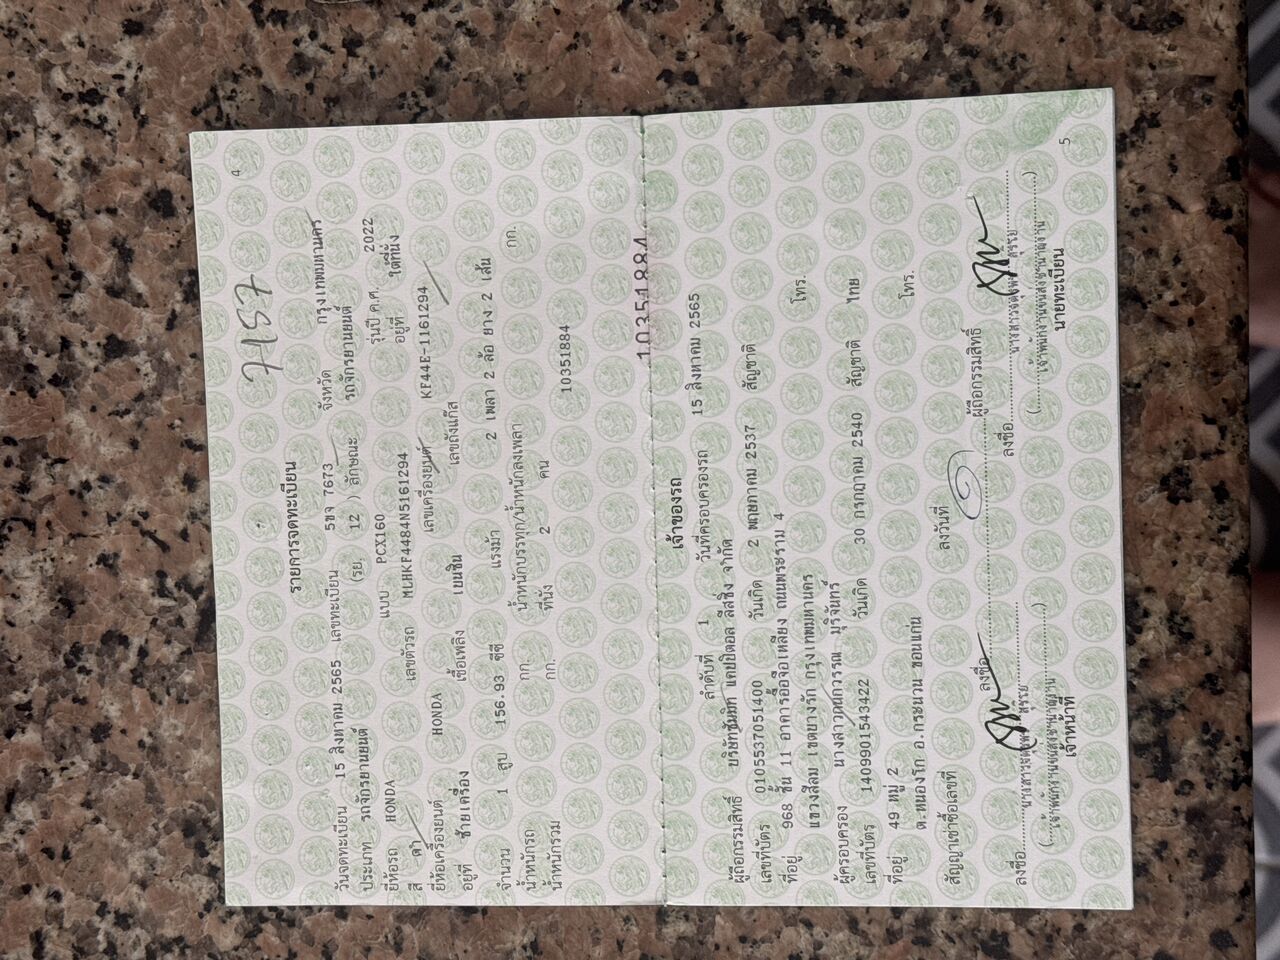 4
7457
รายการจดทะเบียน
วันจดทะเบียน 15 สิงหาคม 2565 เลขทะเบียน 5ขจ 7673 จังหวัด กรุงเทพมหานคร
ประเภท รถจักรยานยนต์ (รย. 12 ) ลักษณะ รถจักรยานยนต์
ยี่ห้อรถ HONDA แบบ PCX160 รุ่นปี ค.ศ. 2022
สี ดำ เลขตัวรถ MLHKF4484N5161294 อยู่ที่ ใต้ที่นั่ง
ยี่ห้อเครื่องยนต์ HONDA เลขเครื่องยนต์ KF44E-1161294
อยู่ที่ ซ้ายเครื่อง เชื้อเพลิง เบนซิน เลขถังแก๊ส
จำนวน 1 สูบ 156.93 ซีซี แรงม้า 2 เพลา 2 ล้อ ยาง 2 เส้น
น้ำหนักรถ กก. น้ำหนักบรรทุก/น้ำหนักลงเพลา กก.
น้ำหนักรวม กก. ที่นั่ง 2 คน 10351884
10351884
เจ้าของรถ
ลำดับที่ 1 วันที่ครอบครองรถ 15 สิงหาคม 2565
ผู้ถือกรรมสิทธิ์ บริษัทซัมมิท แคปปิตอล ลีสซิ่ง จำกัด
เลขที่บัตร 0105537051400 วันเกิด 2 พฤษภาคม 2537 สัญชาติ
ที่อยู่ 968 ชั้น 11 อาคารอื้อจือเหลียง ถนนพระราม 4
แขวงสีลม เขตบางรัก กรุงเทพมหานคร โทร.
ผู้ครอบครอง นางสาวกนกวรรณ มุริจันทร์
เลขที่บัตร 1409901543422 วันเกิด 30 กรกฎาคม 2540 สัญชาติ ไทย
ที่อยู่ 49 หมู่ 2
ต.หนองโก อ.กระนวน ขอนแก่น โทร.
สัญญาเช่าซื้อเลขที่ ลงวันที่
ลงชื่อ ผู้ถือกรรมสิทธิ์
ลงชื่อ ลงชื่อ
(เจ้าพนักงานขนส่งชำนาญงาน) (เจ้าพนักงานขนส่งชำนาญงาน)
เจ้าหน้าที่ นายทะเบียน
5